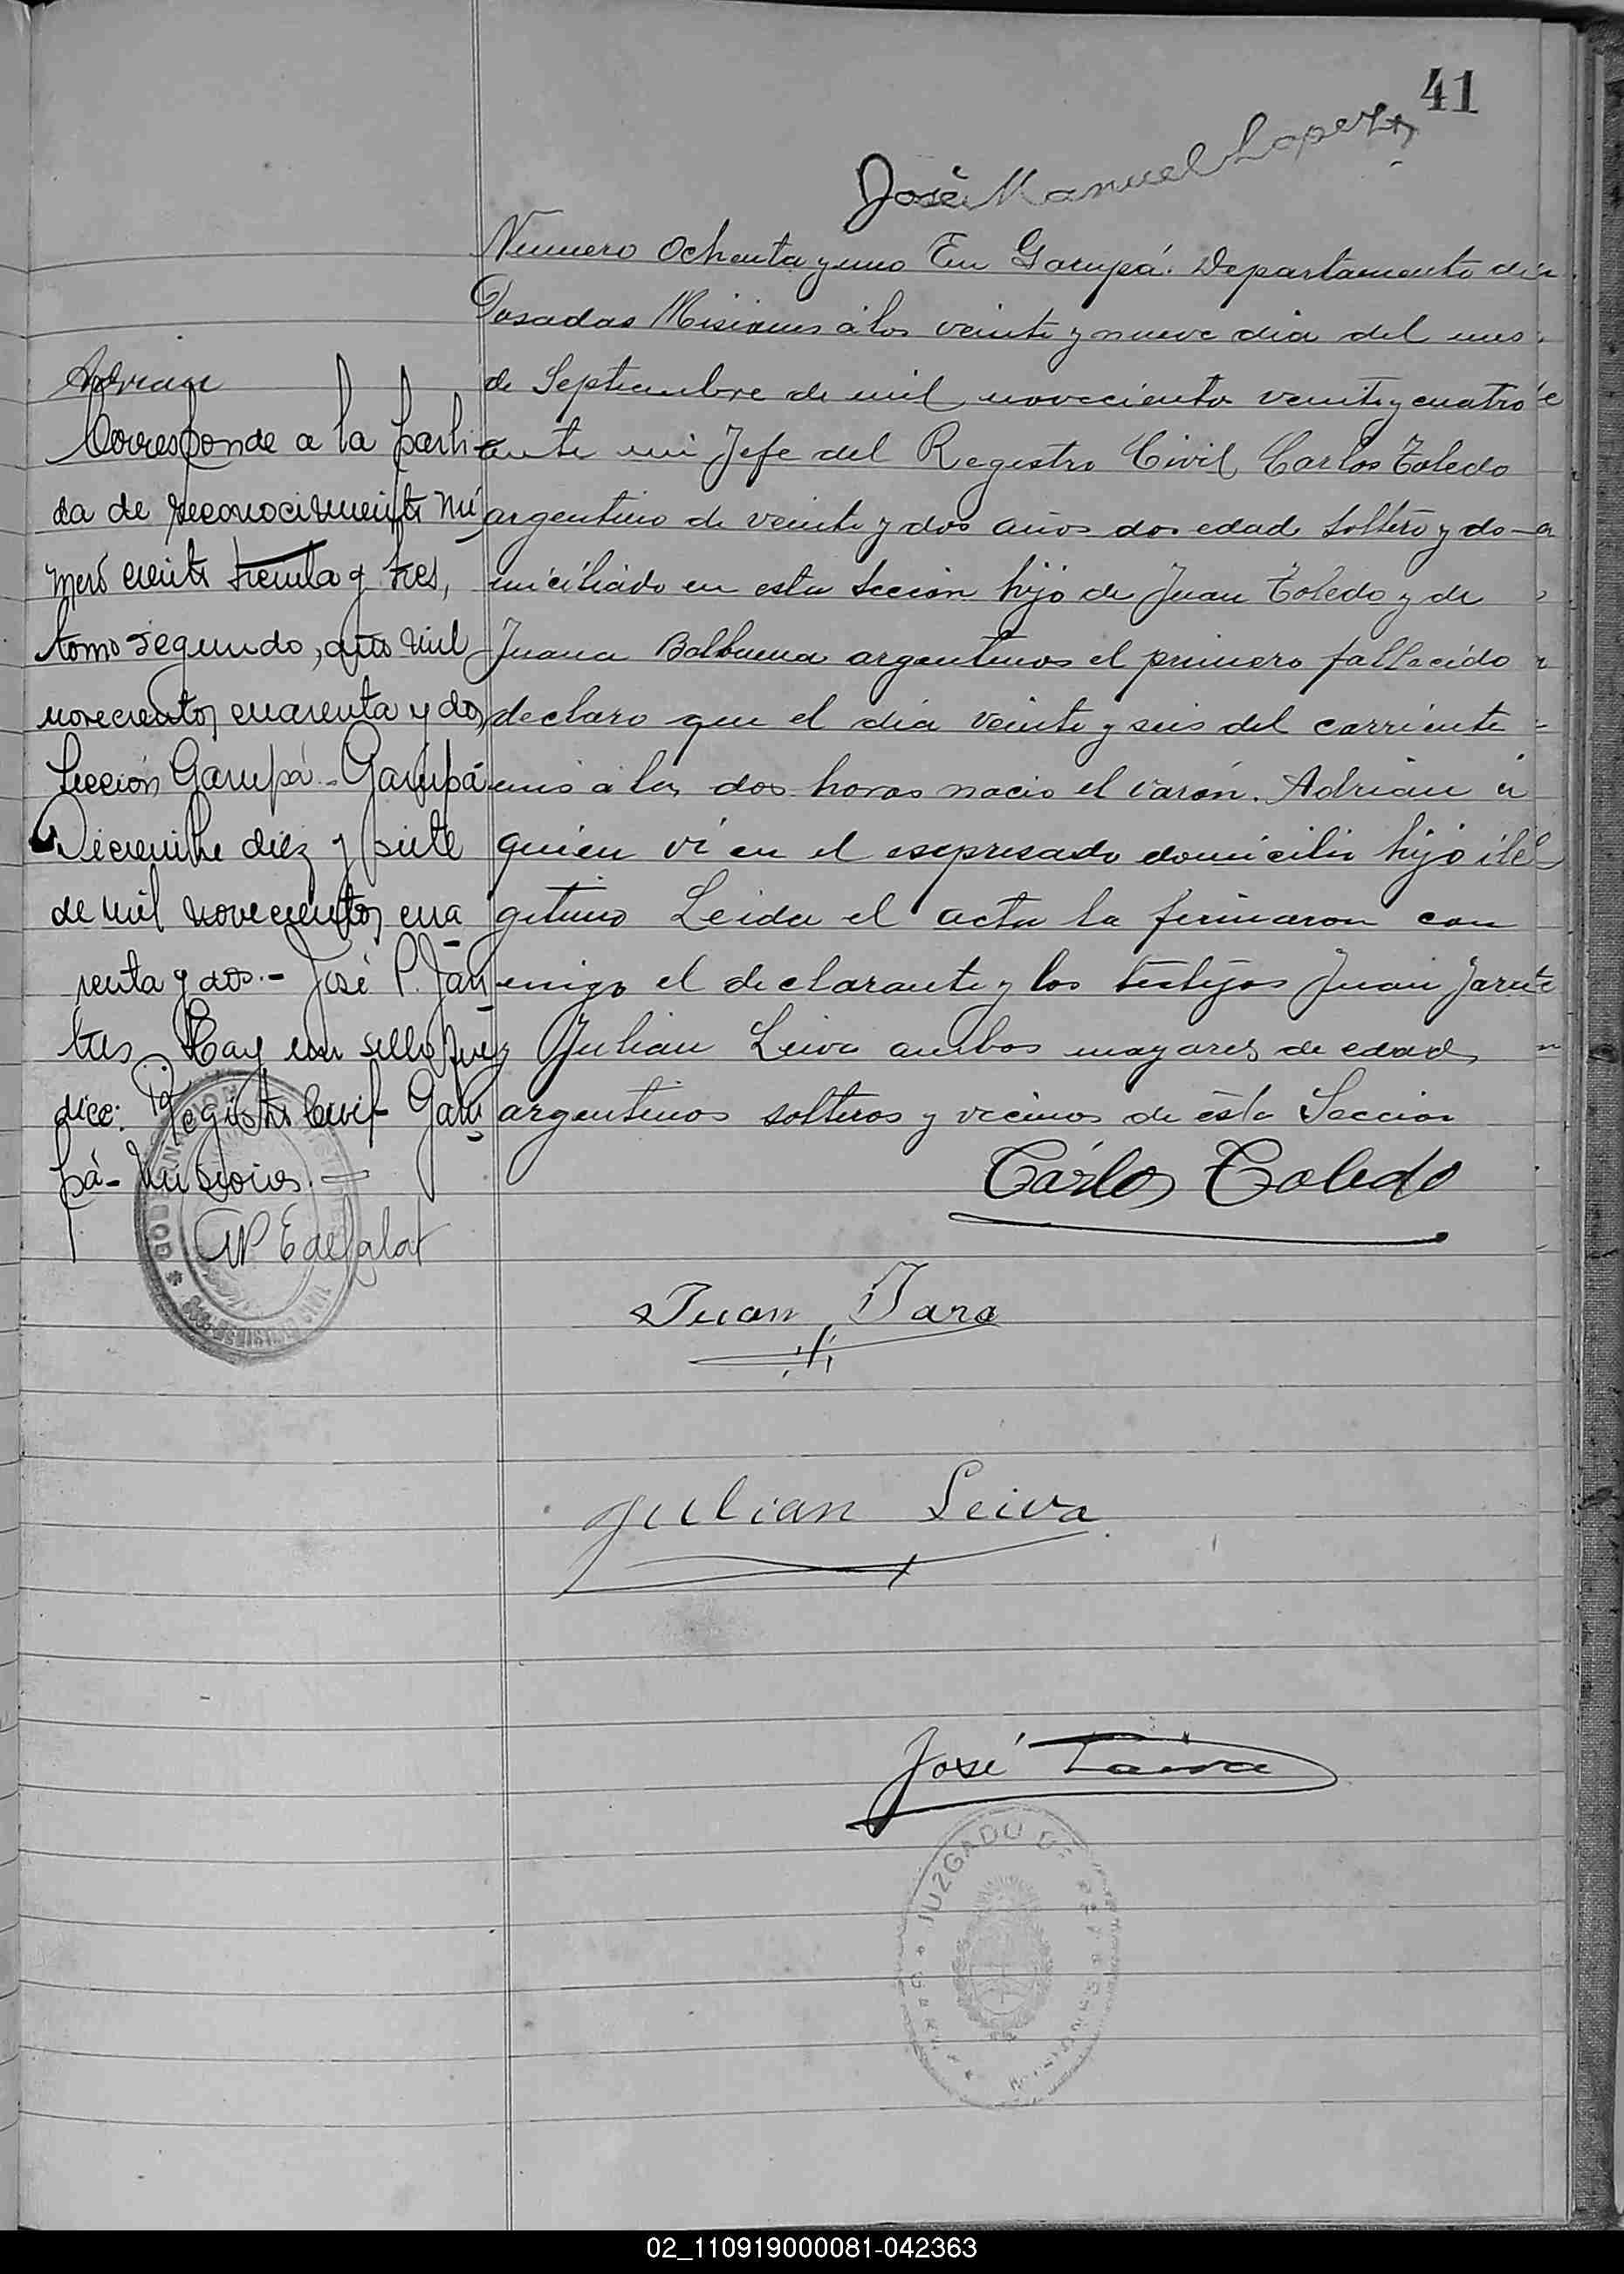 41
José Manuel Lopez
Numero Ochenta y uno En Garupá. Departamento de
Posadas Misiones á los veinte y nueve dia del mes
de Septiembre de mil novecientos veinte y cuatro
ante mi Jefe del Registro Civil Carlos Toledo
argentino de veinte y dos años dos edad soltero y do
miciliado en esta Sección hijo de Juan Toledo y de
Juana Balbuena argentinos el primero fallecido
declaro que el día veinte y seis del corriente
mes á las dos horas nacio el varón. Adrian á
quien ví en el esepresado domicilio hijo ilé
gitimo Leida el acta la firmaron con
migo el declarante y los testigos Juan Jara
Julian Leiva ambos mayores de edad
argentinos solteros y vecinos de ésta Seccion
Adrian
Corresponde a la parti
da de reconocimiento nú
mero ciento treinta y tres,
tomo segundo, año mil
novecientos cuarenta y dos
Sección Garupá - Garupá
Diciembre diez y siete
de mil novecientos cua
renta y dos.- José P. Jan
tus Hay un sello que
dice: Registro Civil Garu
pá - Misiones.
Cárlos Toledo
Juan Jara
Julian Leiva
José
JUZGADO
02_110919000081-042363